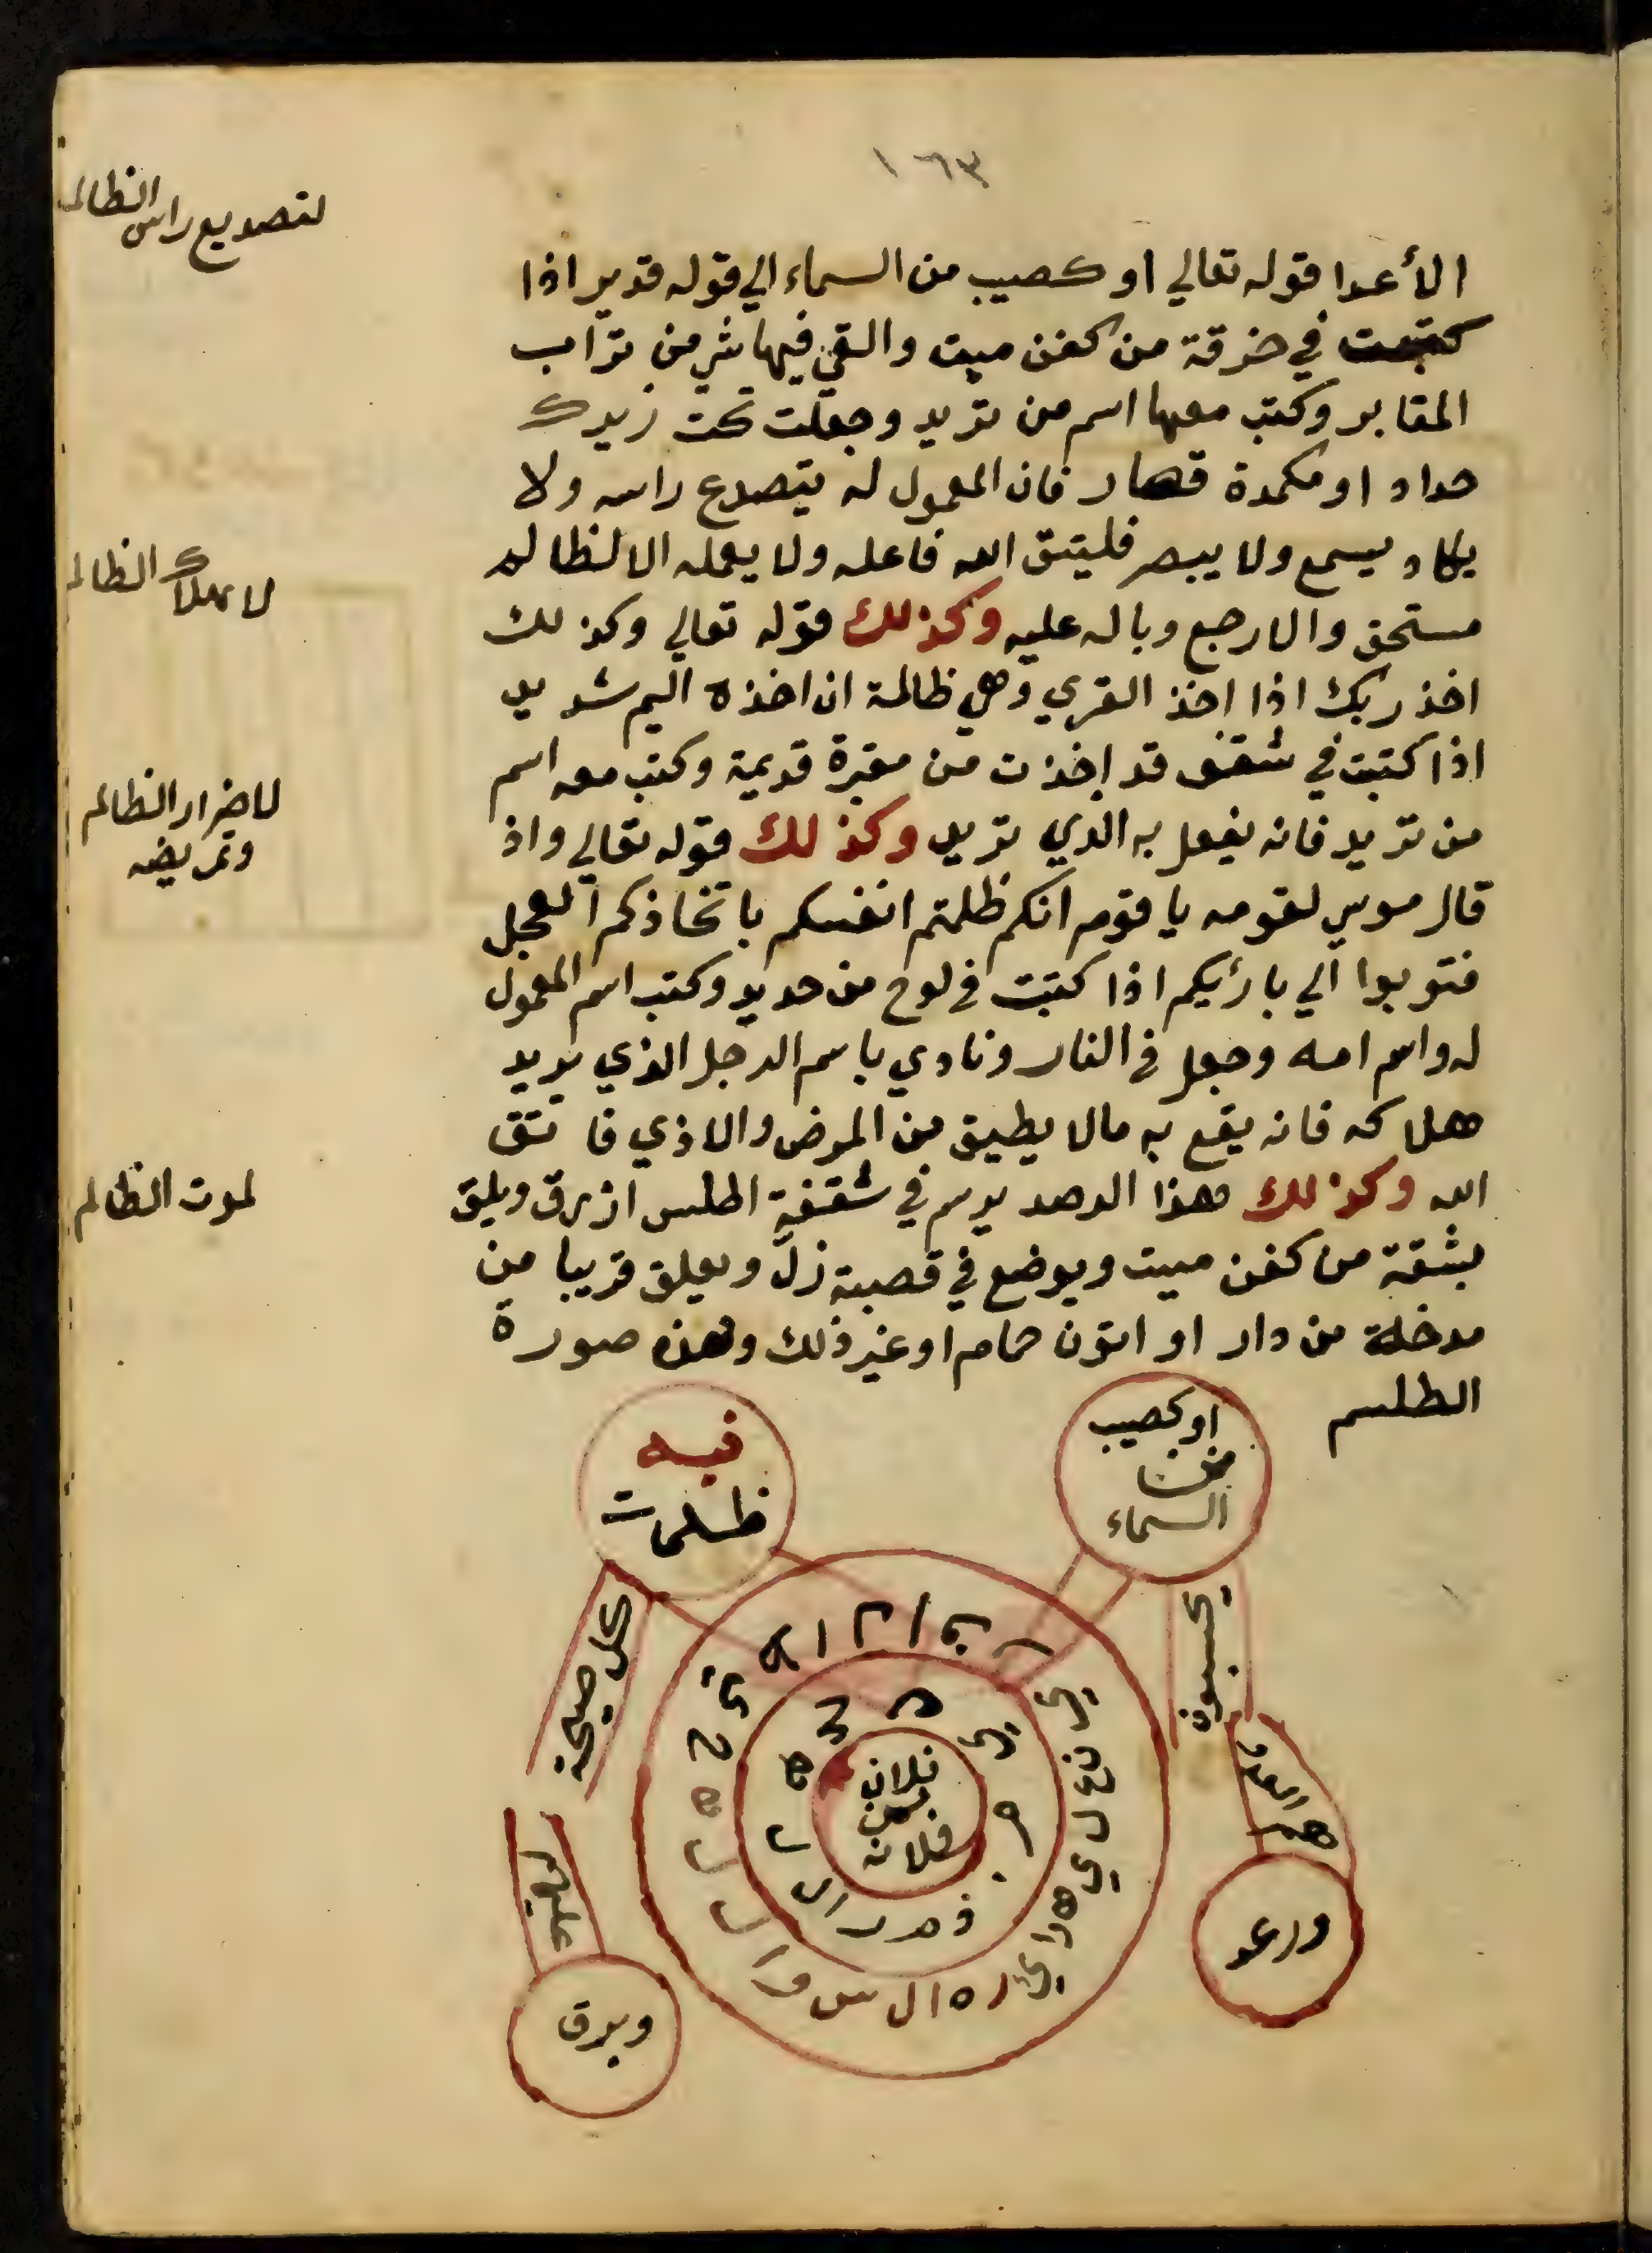 ١٦٣
لتصديع راس الظالم
الأعدا قوله تعالي او كصيب من السماء الي قوله قدير اذا
كتبت في خرقة من كفن ميت والقي فيها شي من تراب
المقابر وكتب معها اسم من تريد وجعلت تحت زبرك
حداد او مكمدة قصار فان المعمول له يتصدع راسه ولا
يكاد يسمع ولا يبصر فليتق الله فاعله ولا يعمله الا لظالم
مستحق والا رجع وباله عليه وكذلك قوله تعالي وكذلك
لاهلاك الظالم
اخذ ربك اذا اخذ القري وهي ظالمة ان اخذه اليم شديد
اذا كتبت في شقف قد اخذت من مقبرة قديمة وكتب معه اسم
من تريد فانه يفعل به الذي تريد وكذلك قوله تعالي واذ
لاضرار الظالم
وتمريضه
قال موسي لقومه يا قوم انكم ظلمتم انفسكم باتخاذكم العجل
فتوبوا الي بارئيكم اذا كتبت في لوح من حديد وكتب اسم المعمول
له واسم امه وجعل في النار ونادي باسم الرجل الذي يريد
هلاكه فانه يقع به مالا يطيق من المرض والاذي فاتتق
الله وكذلك هذا الرصد يرسم في شقفة اطلس ازرق ويلق
لموت الظالم
بشقة من كفن ميت ويوضع في قصبة زل ويعلق قريبا من
مدخلة من دار او اتون حمام او غير ذلك وهذه صورة
الطلسم
او كصيب
من
السماء
فيه
ظلمت
ورعد
وبرق
يحسبون
كل صيحة
عليهم
هم العدو
فلان
بن
فلانه